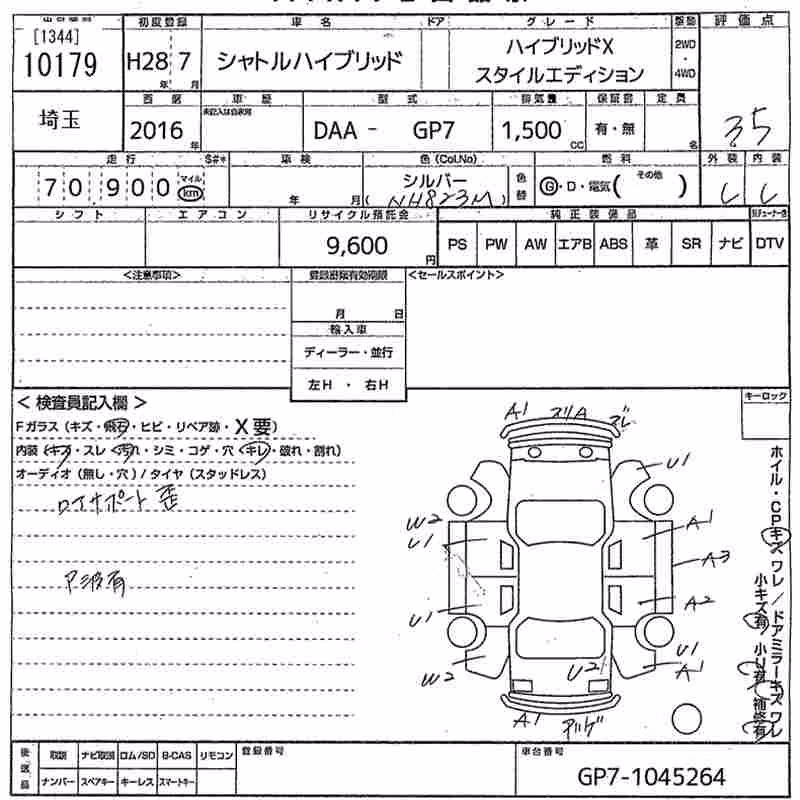 [1344]
10179
初度登録
H28 7
年 月
車名
シャトルハイブリッド
ドア
グレード
ハイブリッドX
スタイルエディション
駆動
2WD
・
4WD
評価点
3.5
埼玉
西暦
2016
年
車歴
未記入は自家用
型式
DAA - GP7
排気量
1,500
CC
保証書
有・無
定員
名
走行
70900
マイル
km
S#*
車検
年 月
色(Col.No)
シルバー
(NH823M)
色替
燃料
G・D・電気( その他 )
外装
内装
シフト
エアコン
リサイクル預託金
9,600
円
純正装備品
PS PW AW エアB ABS 革 SR ナビ DTV
<注意事項>
登録書類有効期限
月 日
輸入車
ディーラー・並行
左H ・ 右H
<セールスポイント>
< 検査員記入欄 >
Fガラス(キズ・飛石・ヒビ・リペア跡・X要)
内装(キズ・スレ・汚れ・シミ・コゲ・穴・キレ・破れ・割れ)
オーディオ(無し・穴)/タイヤ(スタッドレス)
ロイサポート歪
ア波有
キーロック
A1 スリA ズレ
U1
W2
U1
A1
A3
U1
A2
W2
U2
U1
A1
A1
ホイル・CPキズ ワレ/ドアミラーキズ ワレ
小キズ有/小U有/補修有
後送品
取説 ナビ取説 ロム/SD B-CAS リモコン
ナンバー スペアキー キーレス スマートキー
登録番号
車台番号
GP7-1045264